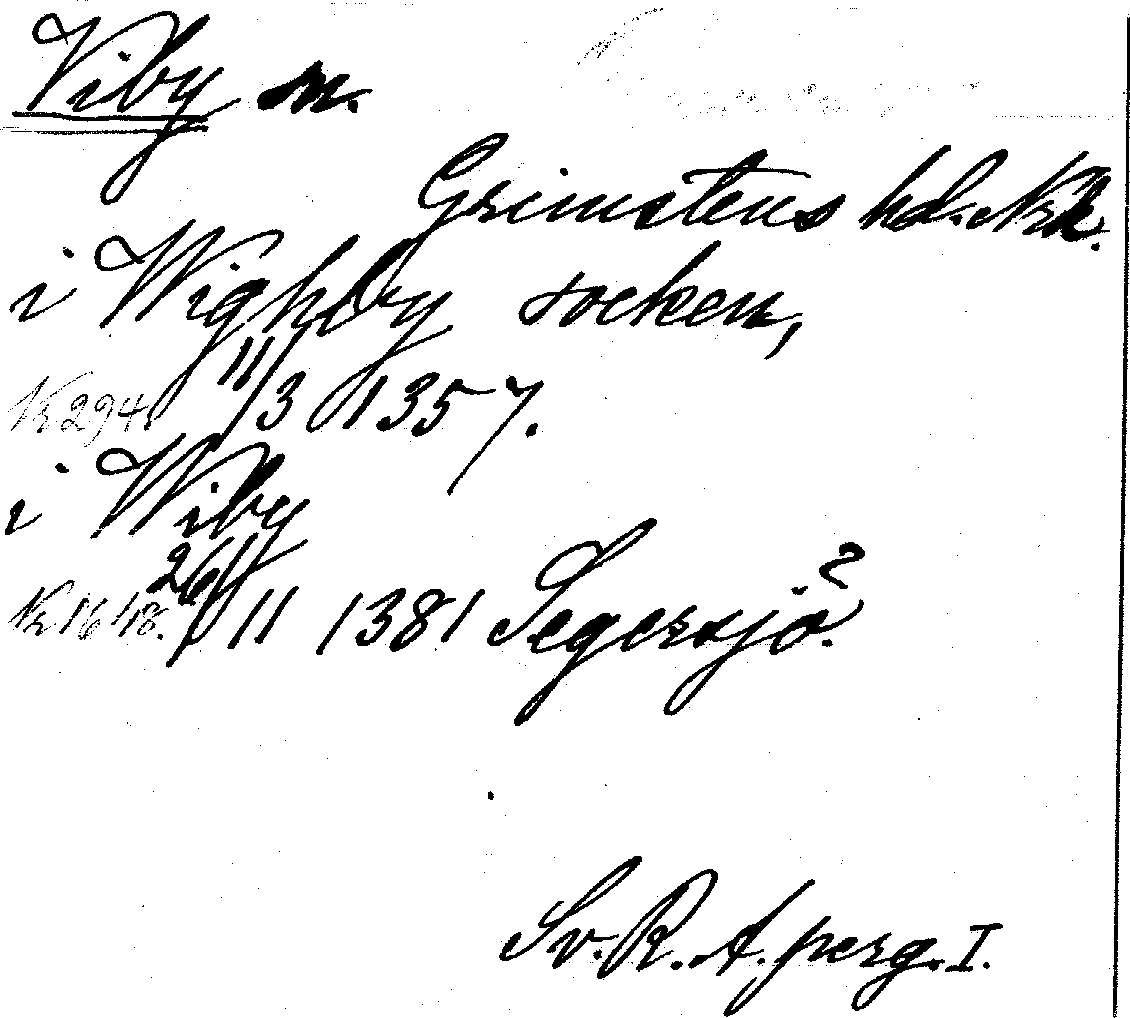 Viby sn.
Grimstens hd. Nrk.
i Wighby socken,
Nr 294. 11/3 1357.
i Wiby
Nr 1648. 26/11 1381 Segersjö?
Sv. R. A. perg. I.